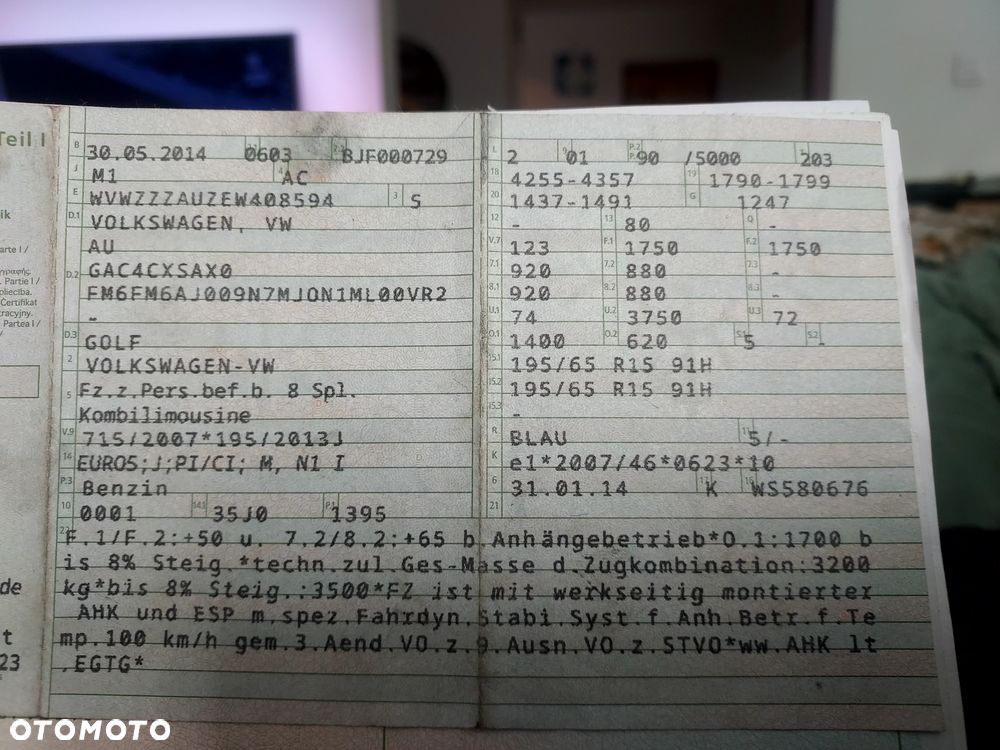 Teil I
B 30.05.2014 0603 BJF000729
J M1 AC
E WVWZZZAUZEW408594 3 5
D.1 VOLKSWAGEN, VW
AU
D.2 GAC4CXSAX0
FM6FM6AJ009N7MJON1ML00VR2
-
D.3 GOLF
2 VOLKSWAGEN-VW
5 Fz.z.Pers.bef.b. 8 Spl.
Kombilimousine
V.9 715/2007*195/2013J
14 EURO5;J;PI/CI; M, N1 I
P.3 Benzin
10 0001 14.1 35J0 P.1 1395
L 2 9 01 P.2 P.4 90 /5000 T 203
18 4255-4357 19 1790-1799
20 1437-1491 G 1247
12 - 13 80 Q -
V.7 123 F.1 1750 F.2 1750
7.1 920 7.2 880 7.3 -
8.1 920 8.2 880 8.3 -
U.1 74 U.2 3750 U.3 72
O.1 1400 O.2 620 S.1 5 S.2 -
15.1 195/65 R15 91H
15.2 195/65 R15 91H
15.3 -
R BLAU 11 5/-
K e1*2007/46*0623*10
6 31.01.14 17 K 16 WS580676
21
22 F.1/F.2:+50 u. 7.2/8.2:+65 b.Anhängebetrieb*O.1:1700 b
is 8% Steig.*techn.zul.Ges-Masse d.Zugkombination:3200
kg*bis 8% Steig.:3500*FZ ist mit werkseitig montierter
AHK und ESP m.spez.Fahrdyn.Stabi.Syst.f.Anh.Betr.f.Te
mp.100 km/h gem.3.Aend.VO.z.9.Ausn.VO.z.STVO*ww.AHK lt
.EGTG*
ik
arte I /
. Partie I /
Certifikat
Partea I /
de
t
23
OTOMOTO